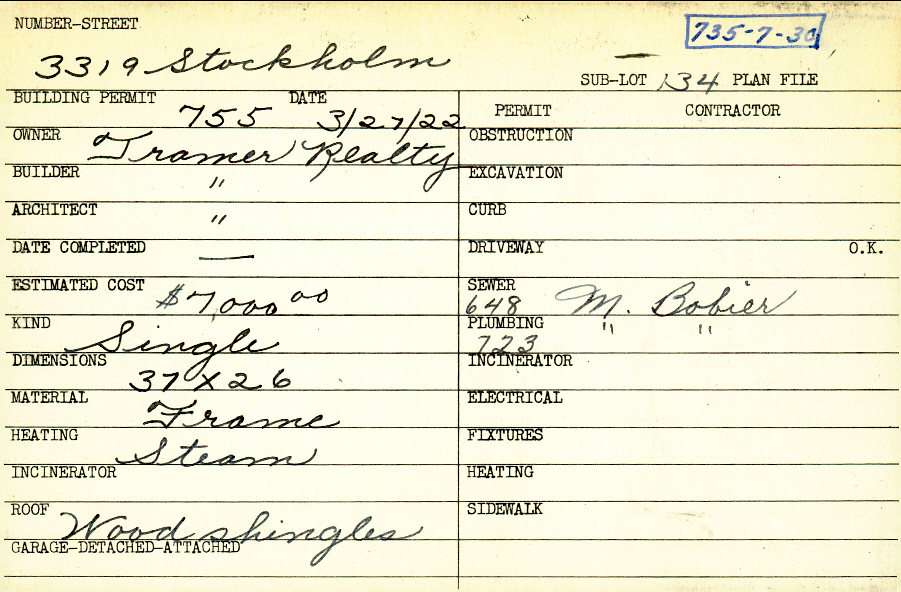 NUMBER-STREET
735-7-30
3319 Stockholm —
SUB-LOT 134 PLAN FILE
BUILDING PERMIT 755 DATE 3/27/22
OWNER Tramer Realty
BUILDER "
ARCHITECT "
DATE COMPLETED —
ESTIMATED COST $7,000 00
KIND Single
DIMENSIONS 37 X 26
MATERIAL Frame
HEATING Steam
INCINERATOR
ROOF Wood shingles
GARAGE-DETACHED-ATTACHED
PERMIT CONTRACTOR
OBSTRUCTION
EXCAVATION
CURB
DRIVEWAY O.K.
SEWER
648 M. Bobier
PLUMBING " "
723
INCINERATOR
ELECTRICAL
FIXTURES
HEATING
SIDEWALK